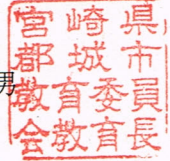 男
宮崎県
都城市
教育委員
会教育長